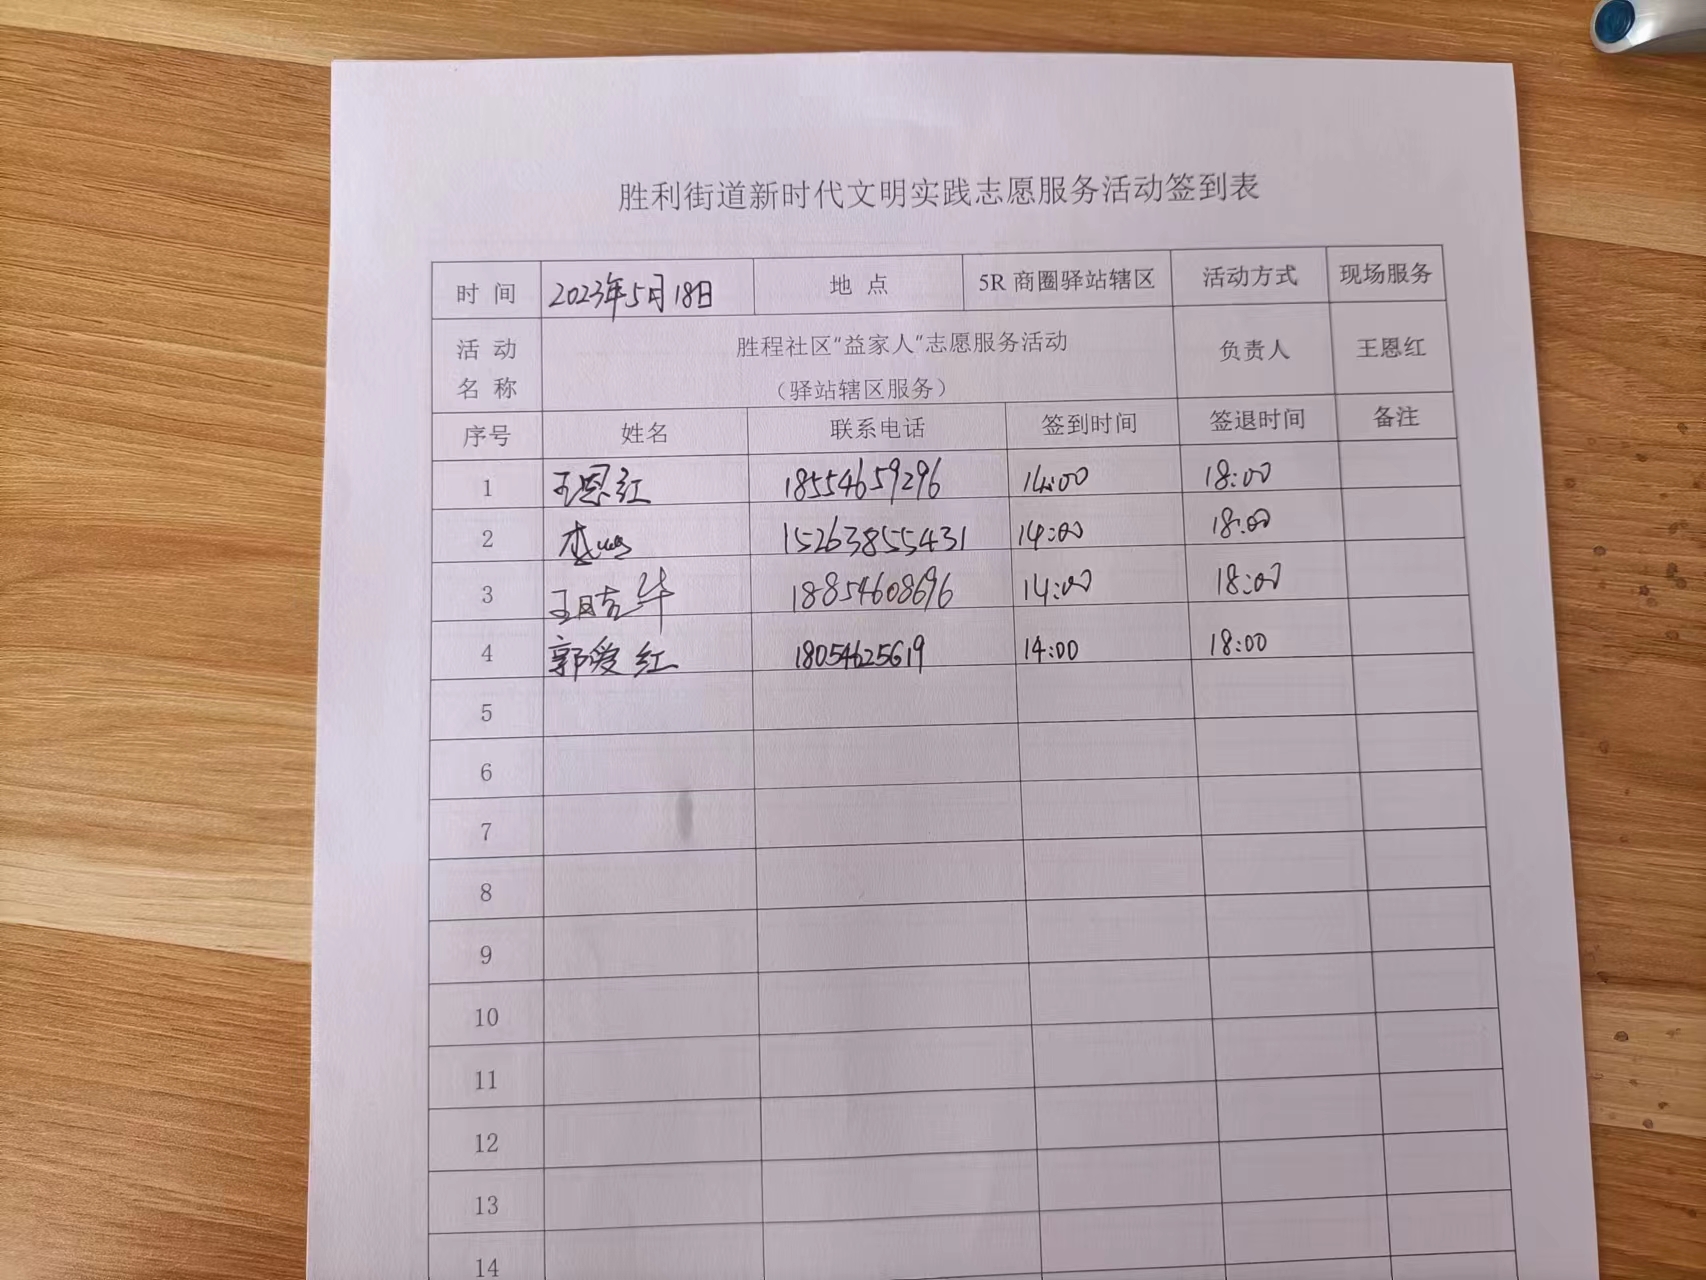 胜利街道新时代文明实践志愿服务活动签到表
时 间 2023年5月18日 地 点 5R 商圈驿站辖区 活动方式 现场服务
活 动 名 称 胜程社区“益家人”志愿服务活动 负责人 王恩红
（驿站辖区服务）
序号 姓名 联系电话 签到时间 签退时间 备注
1 王恩红 18554659296 14:00 18:00
2 15263855431 14:00 18:00
3 18854608696 14:00 18:00
4 郭爱红 18054625619 14:00 18:00
5
6
7
8
9
10
11
12
13
14